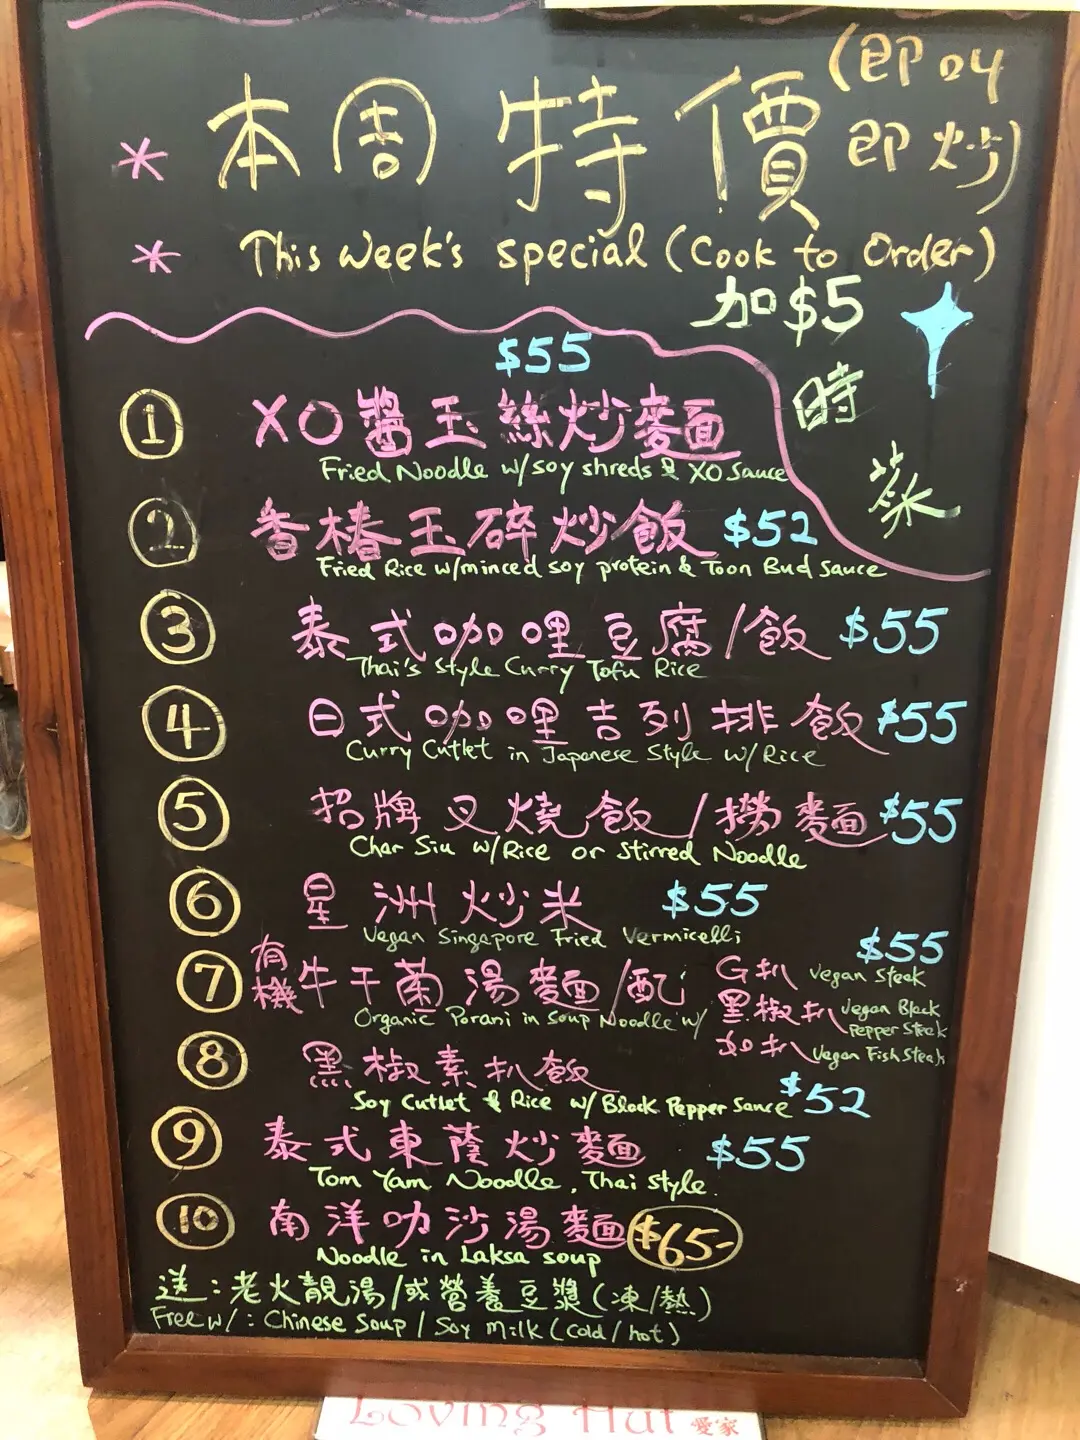 * 本周特價 (即叫即炒)
* This week's special (Cook to Order)
加$5
時
菜
$55
① XO醬玉絲炒麵
Fried Noodle w/soy shreds & XO Sauce
② 香椿玉碎炒飯 $52
Fried Rice w/minced soy protein & Toon Bud Sauce
③ 泰式咖哩豆腐/飯 $55
Thai's Style Curry Tofu Rice
④ 日式咖哩吉列排飯 $55
Curry Cutlet in Japanese Style w/Rice
⑤ 招牌叉燒飯/撈麵 $55
Char Siu w/Rice or Stirred Noodle
⑥ 星洲炒米 $55
Vegan Singapore Fried Vermicelli
$55
⑦ 有機牛干菌湯麵/配
Organic Porani in Soup Noodle w/
G扒 Vegan Steak
黑椒扒 Vegan Black Pepper Steak
如扒 Vegan Fish Steak
⑧ 黑椒素扒飯
Soy Cutlet & Rice w/Black Pepper Sauce $52
⑨ 泰式東蔭炒麵 $55
Tom Yam Noodle, Thai Style.
⑩ 南洋叻沙湯麵 $65-
Noodle in Laksa soup
送:老火靚湯/或營養豆漿(凍/熱)
Free w/: Chinese Soup / Soy Milk (Cold/hot)
Loving Hut 愛家